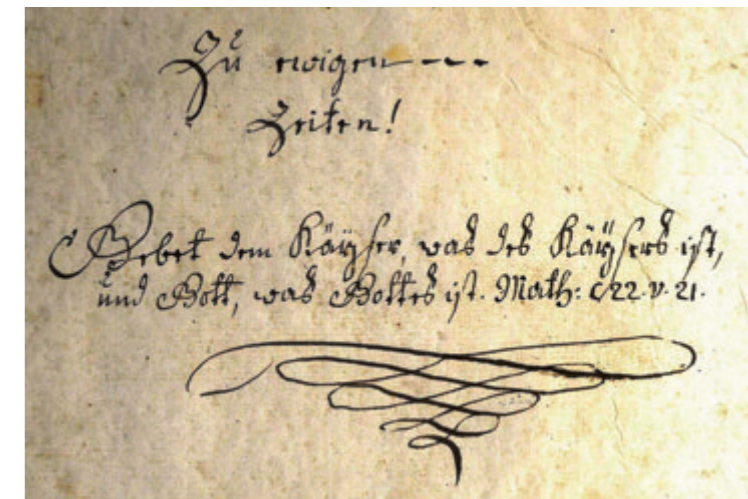 Zu ewigen---
Zeiten!
Gebet dem Käÿser, was des Käÿsers ist,
und Gott, was Gottes ist. Math: c. 22. v. 21.